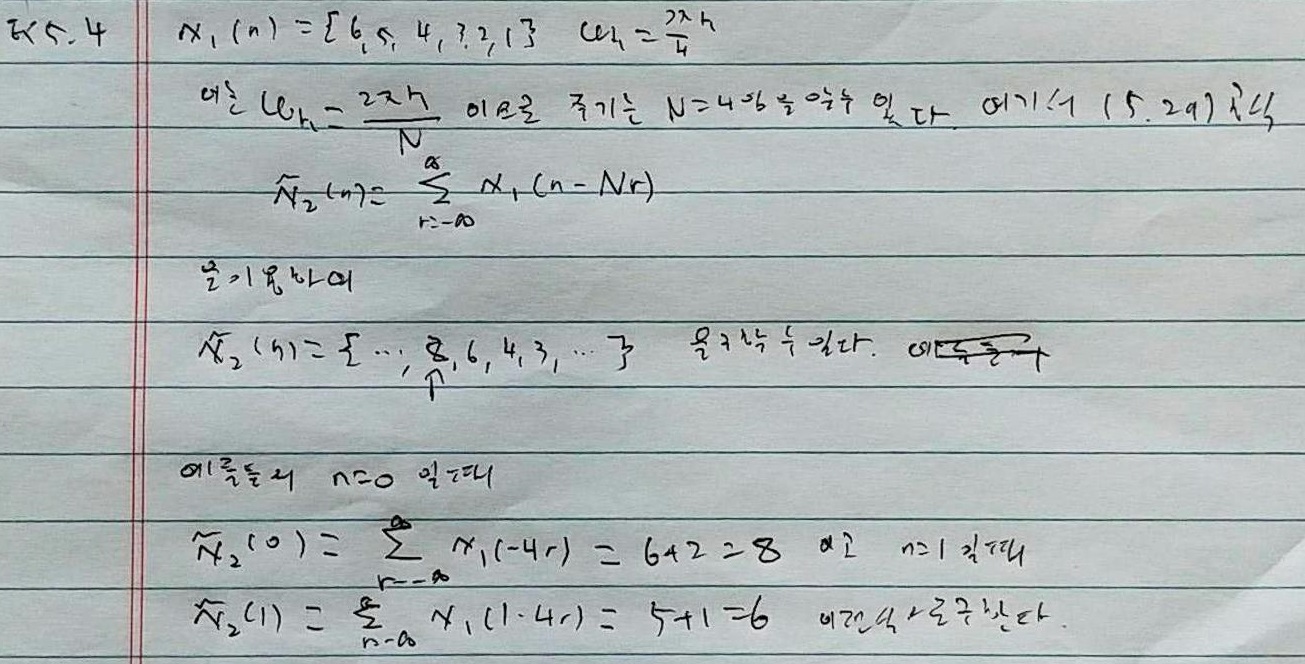 Ex 5.4 x₁(n) = {6, 5, 4, 3, 2, 1} ωₖ = 2πk/4
이는 ωₖ = 2πk/N 이므로 주기는 N=4임을 알 수 있다. 여기서 (5.29) 공식
x̃₂(n) = ∑_{r=-∞}^{∞} x₁(n-Nr)
을 이용하여
x̃₂(n) = {..., 8, 6, 4, 3, ...} 을 구할 수 있다.
↑
예를들어 n=0 일때
x̃₂(0) = ∑_{r=-∞}^{∞} x₁(-4r) = 6+2 = 8 이고 n=1 일때
x̃₂(1) = ∑_{r=-∞}^{∞} x₁(1-4r) = 5+1 = 6 이런식으로 구한다.